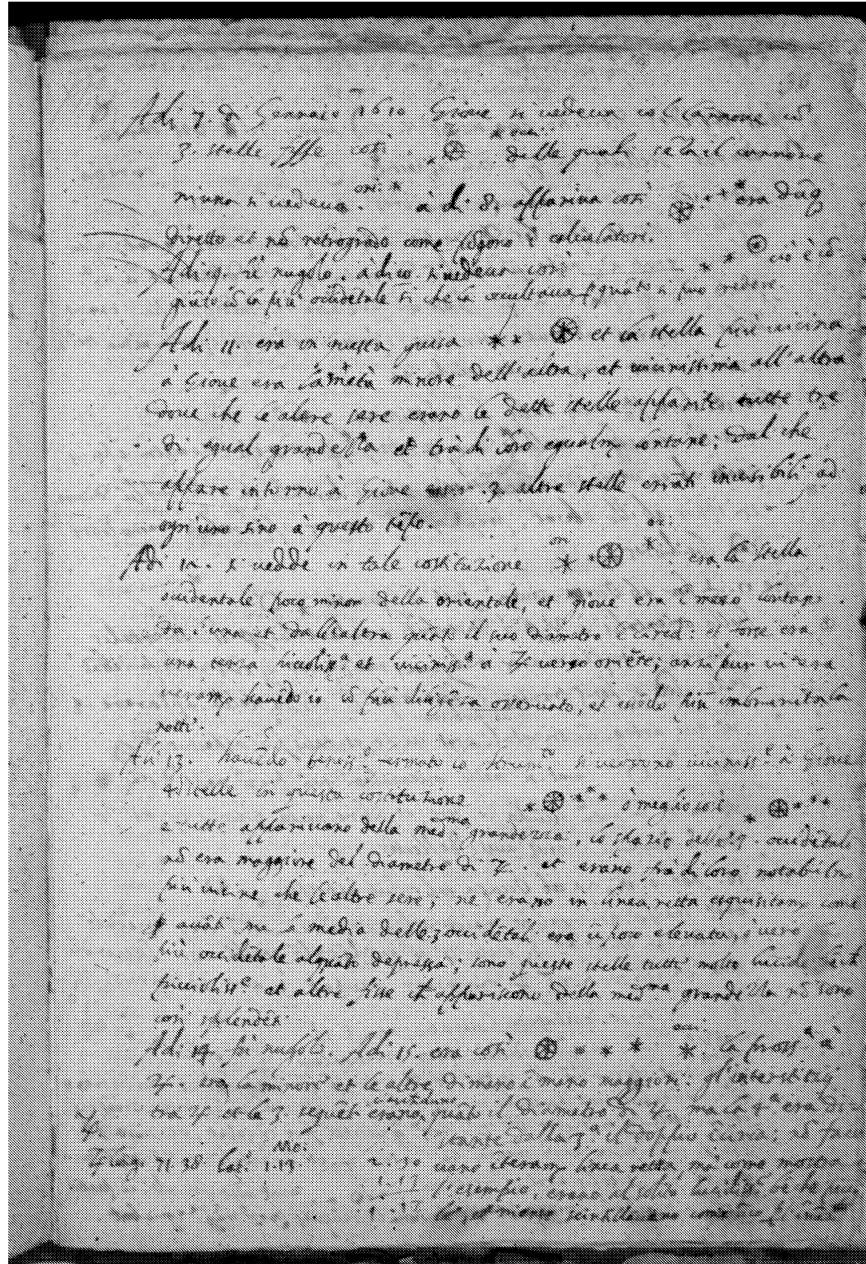 Adi 7. di Gennaio 1610 Giove si vedeva col Cannone cō
3. stelle fisse così delle quali sēza il cannone
niuna si vedeva. ori: à dì 8. appariva così era dūq
diretto et nō retrogrado come pōgono i calculatori.
Adi 9. fù nugolo. à dì 10 si vedeva così ciò è cō
giūto cō la più occidētale si che la occultava p quāto si può credere.
Adi 11. era in questa guisa et la stella più vicina
à Giove era la metà minore dell'altra, et vicinissima all'altra
dove che le altre sere erano le dette stelle apparite tutte tre
di egual grandezza et trà di loro egualm lontane; dal che
appare intorno à Giove esser 3 altre stelle errāti invisibili ad
ogn'uno sino à questo tēpo.
Adi 12. si vedde in tale costituzione ori oc: era la stella
occidentale poco minor della orientale, et giove era ī mezo lontano
da l'una et dall'altra quāto il suo diametro ī circa: et forse era
una terza piccoliss.a et viciniss.a à ♃ verso oriēte; anzi pur vi era
veram havēdo io cō più diligēza osservato, et sēdo più imbrunita la
notte.
Adi 13. havēdo beniss.o fermato lo strum.to si veggono viciniss.e à Giove
4 stelle in questa costituzione ò meglio così
e tutte apparivano della med.ma grandezza, lo spazio delle 3. occidētali
nō era maggiore del diametro di ♃. et erano frà di loro notabilm
più vicine che le altre sere; ne erano in linea retta esquisitam come
avāti ma la media delle 3 occidētali era ū poco elevata, ò vero la
più occidētale alquāto depressa; sono queste stelle tutte molto lucide bēche
piccioliss.e et altre fisse che appariscono della med.ma grandezza nō sono
così splendēti.
Adi 14. fù nugolo. Adi 15. era così occi. la pross.a à
♃. era la minore et le altre di mano ī mano maggiori: gl'interstizij
tra ♃ et le 3 seguēti erano quāto il diametro di ♃. ma la 4.a era di-
stante dalla 3.a il doppio ī circa: nō face
♃ long. 71.38 lat. 1.13 vano īteram linea retta, ma come mostra
l'esempio, erano al solito lucidiss.e bēche picc